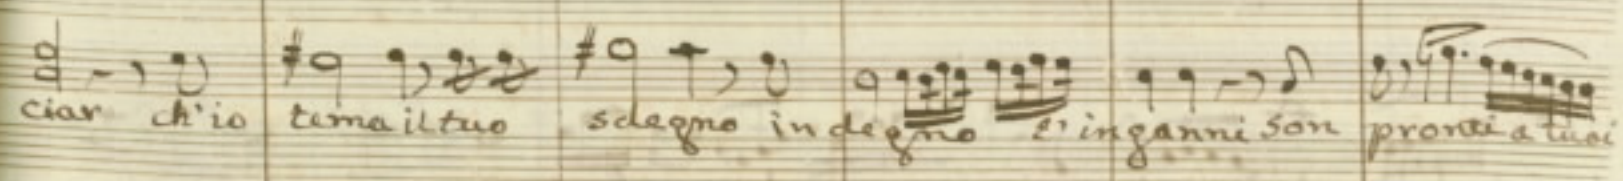 ciar ch'io tema il tuo sdegno indegno t'inganni son pronti a tuoi